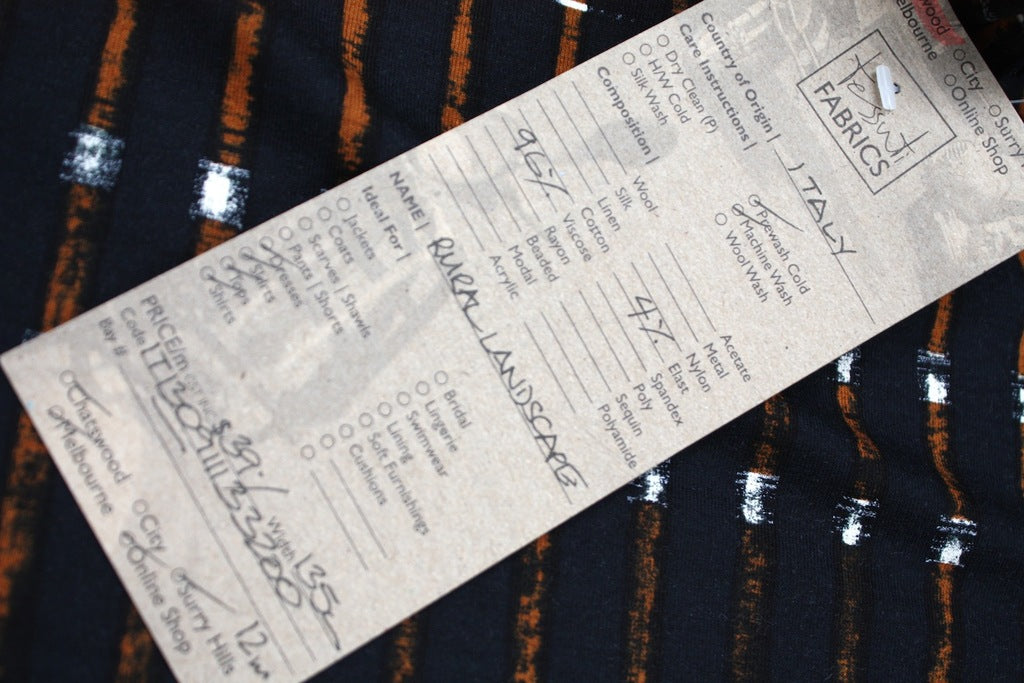 Tessuti
FABRICS
wood
elbourne
City
Online Shop
Surry
Country of Origin | ITALY
Care Instructions |
Dry Clean (P)
H/W Cold
Silk Wash
Prewash Cold
Machine Wash
Wool Wash
Composition |
Wool
Silk
Linen
Cotton
96% Viscose
Rayon
Beaded
Modal
Acrylic
Acetate
Metal
Nylon
4% Elast
Spandex
Poly
Sequin
Polyamide
NAME | RURAL LANDSCAPE
Ideal For |
Jackets
Coats
Scarves | Shawls
Pants | Shorts
Dresses
Skirts
Tops
Shirts
Bridal
Lingerie
Swimwear
Lining
Soft Furnishings
Cushions
PRICE/m GST INC $39./ Width 135c
Code
Bay # 12m
Chatswood
Melbourne
City
Online Shop
Surry Hills